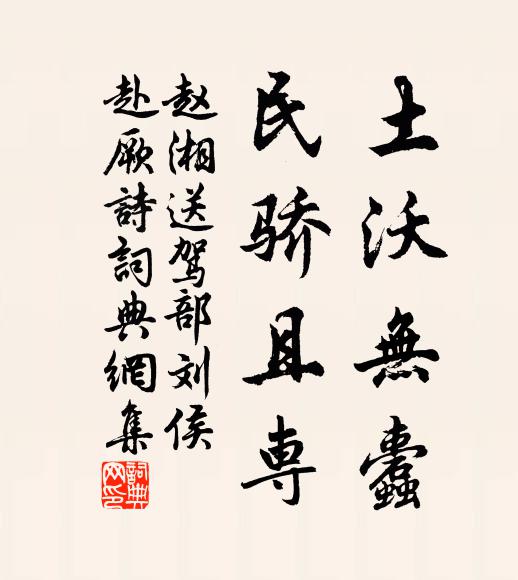 土沃無蠹
民骄且専
赵湘送驾部刘侯
赴厥詩詞典網集
詞典
网印